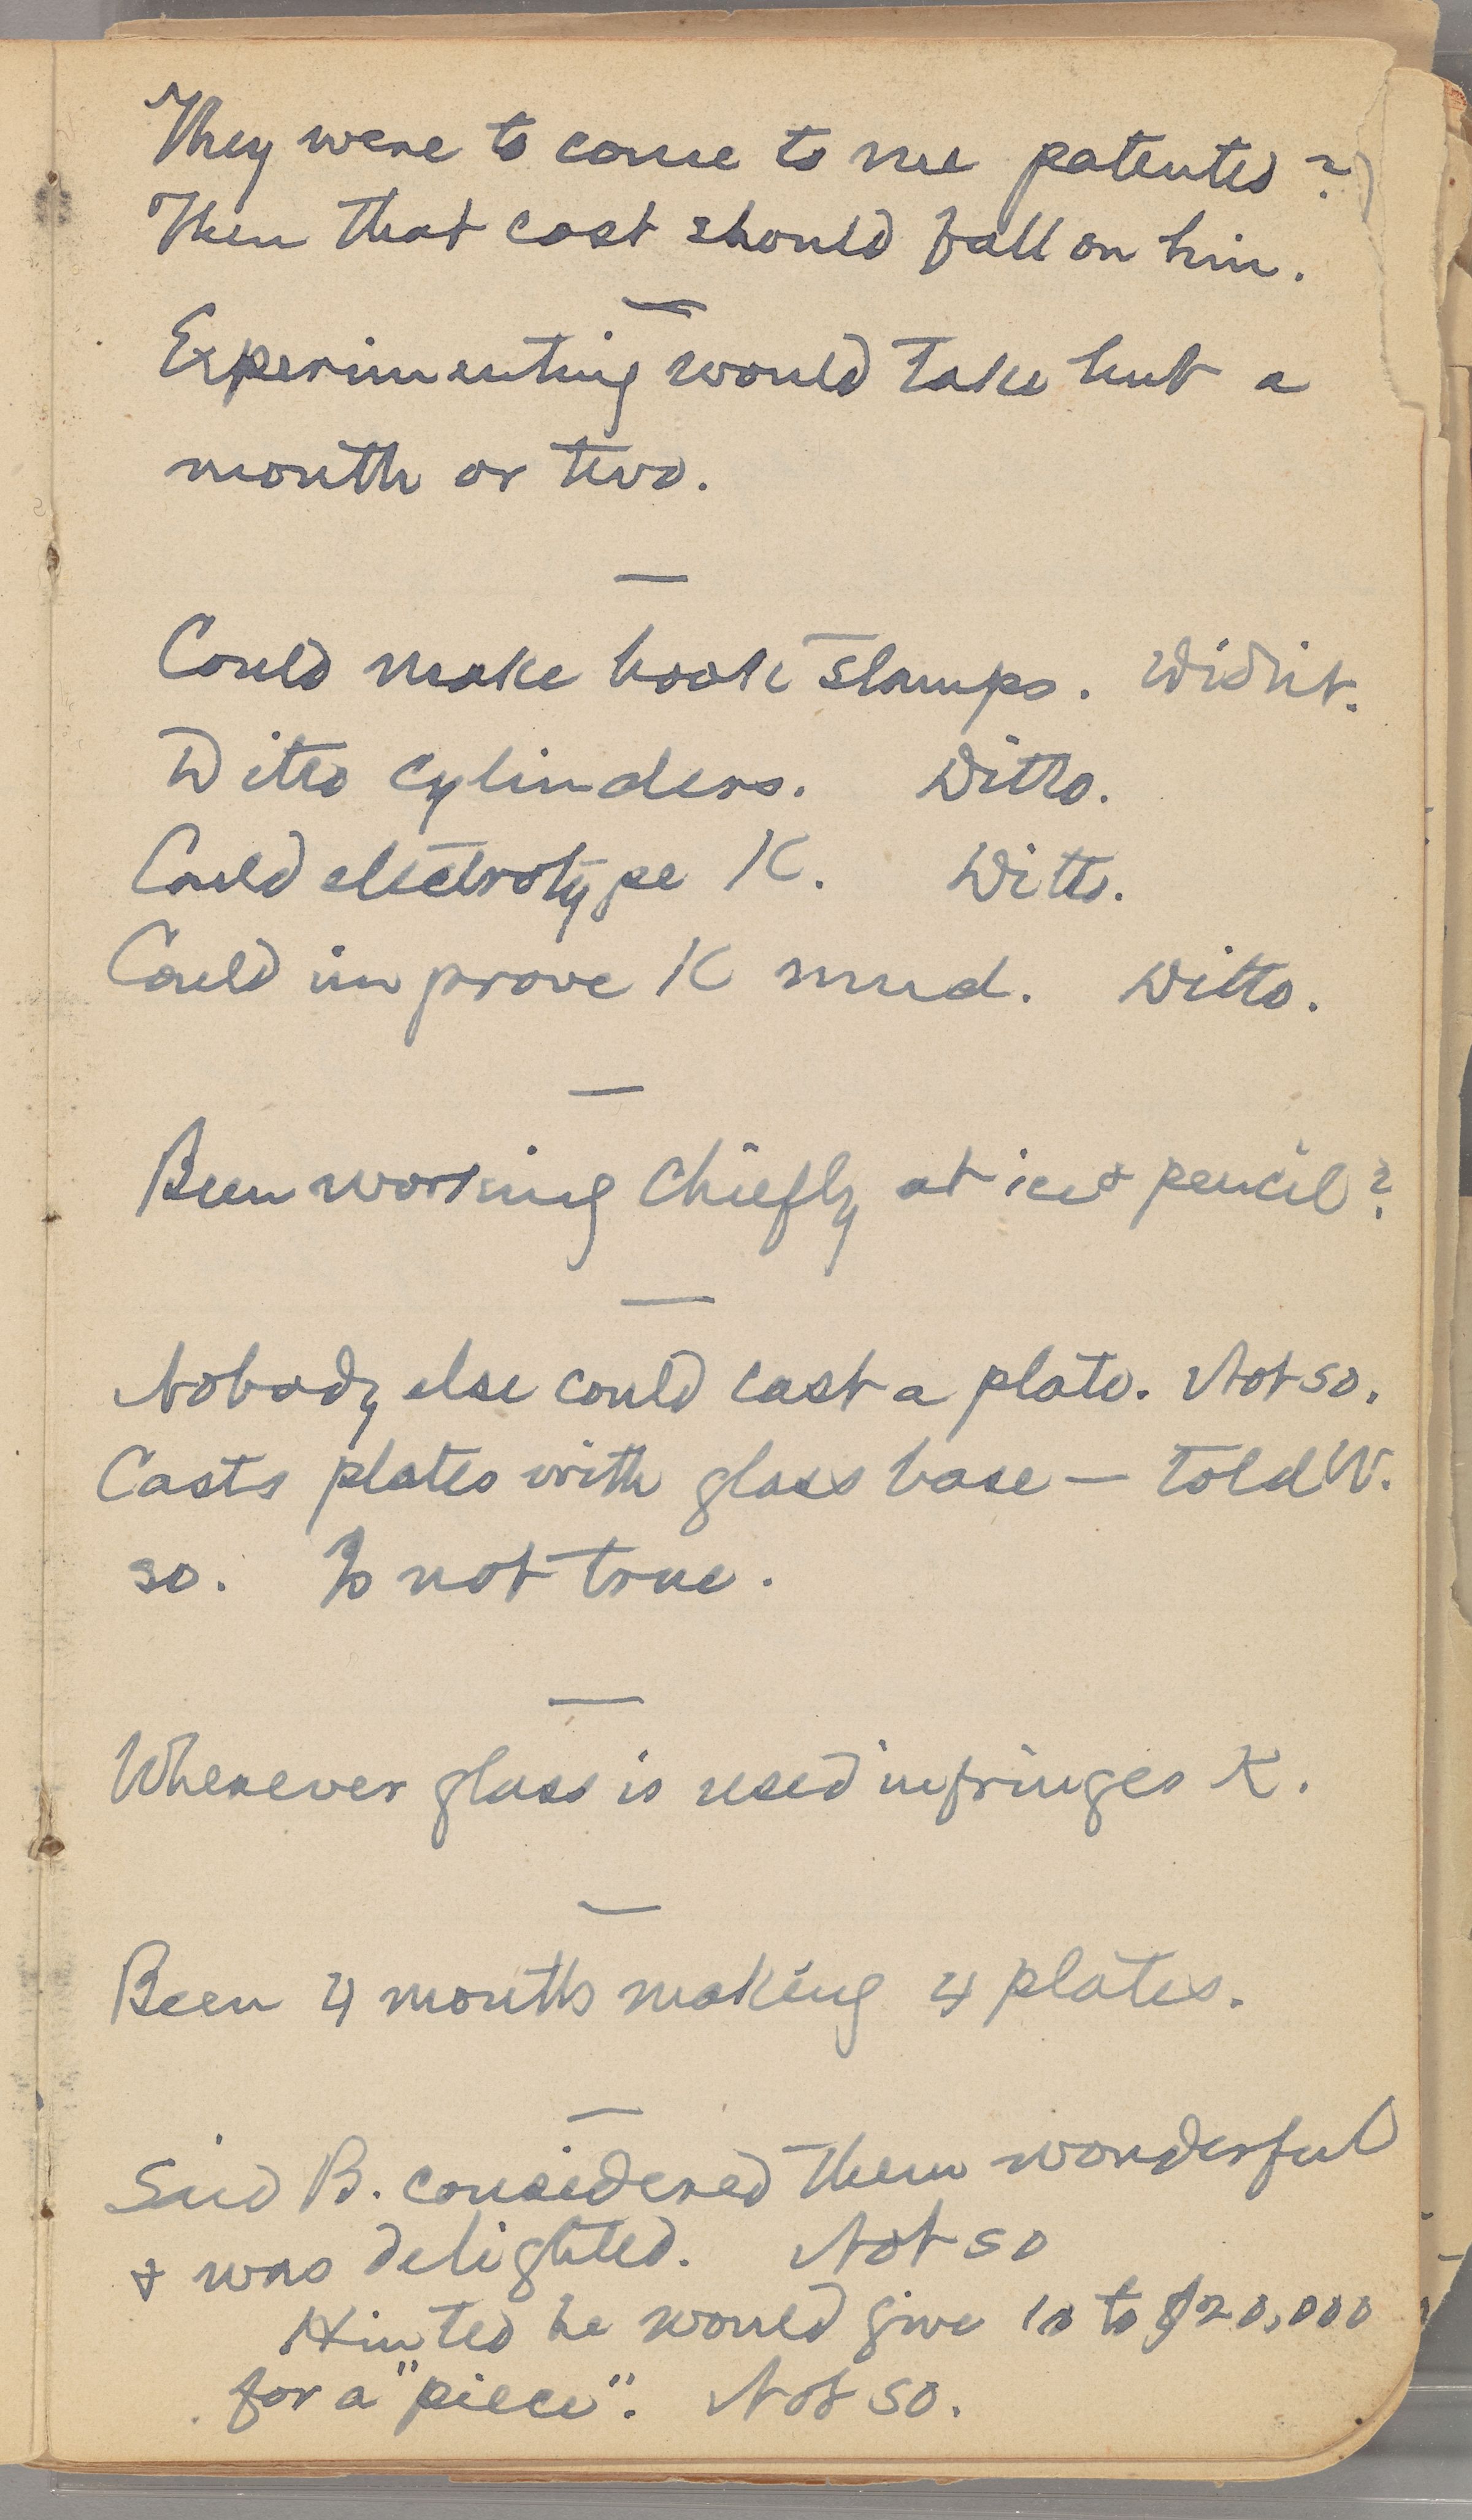 They were to come to me patented?)
Then that cost should fall on him.
Experimenting would take but a
month or two.
Could make book stamps. Didn't.
Ditto cylinders. Ditto.
Could electrotype K. Ditto.
Could improve K mud. Ditto.
Been working chiefly at ice & pencil?
Nobody else could cast a plate. Not so.
Casts plates with glass base — told W.
so. Is not true.
Wherever glass is used infringes K.
Been 4 months making 4 plates.
Said B. considered them wonderful
& was delighted. Not so
Hinted he would give 10 to $20,000
for a "piece". Not so.